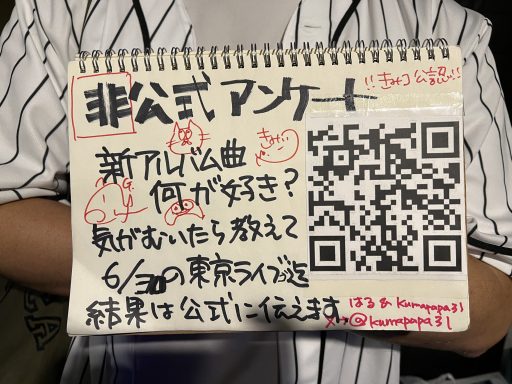 非公式アンケート
!!きみコ公認!!
新アルバム曲
何が好き?
気がむいたら教えて
6/30の東京ライブ迄
結果は公式に伝えます
はる & kumapapa31
X→@kumapapa31